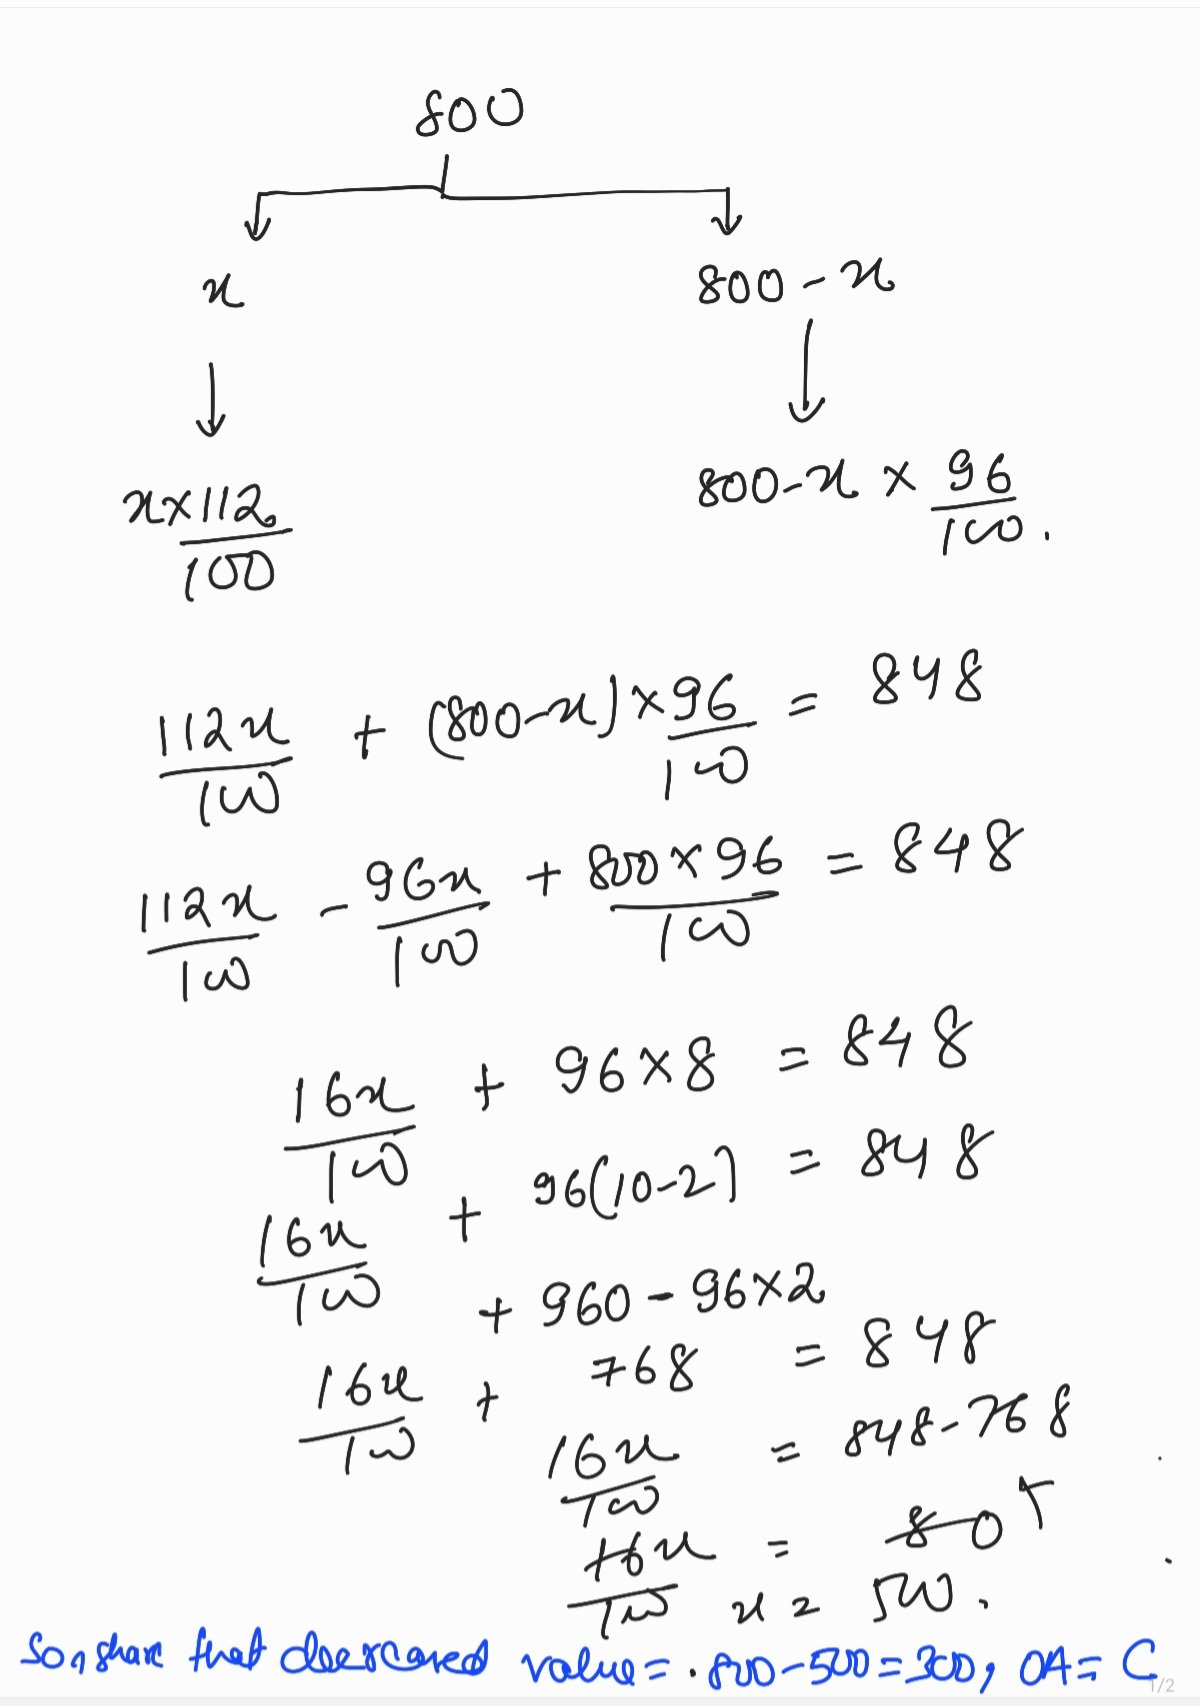 800
x 800-x
x×112/100 800-x × 96/100.
112x/100 + (800-x)×96/100 = 848
112x/100 - 96x/100 + 800×96/100 = 848
16x/100 + 96×8 = 848
16x/100 + 96(10-2) = 848
+ 960-96×2
16x/100 + 768 = 848
16x/100 = 848-768
16x/100 = 80 5
x = 500.
So, share that decreased value = 800-500=300, OA= C
1/2